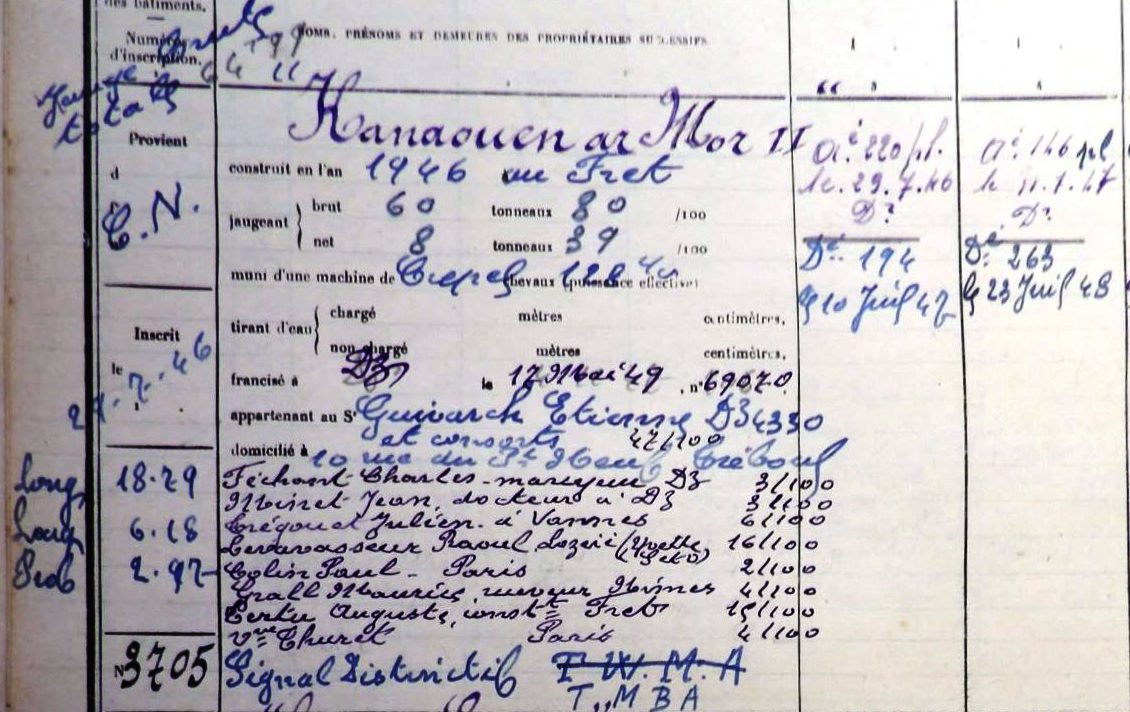 des bâtiments.
Numéro
d'inscription.
NOMS, PRÉNOMS ET DEMEURES DES PROPRIÉTAIRES SUCCESSIFS
Jauge
totale
Provient
d
C.N.
Kanaouen ar Mor II
construit en l'an 1946 au Fret
jaugeant { brut 60 tonneaux 80 /100
net 8 tonneaux 39 /100
muni d'une machine de chevaux (puissance effective)
tirant d'eau { chargé mètres centimètres,
non chargé mètres centimètres,
francisé à DZ le 17 Mai 49 n° 69070
appartenant au Sr Guivarch Etienne DZ 4330
et consorts 47/100
domicilié à 10 rue du Tréboul
Inscrit
le
Long 18.29
Larg 6.18
Prob 2.97
Féchant Charles mareyeur DZ 3/100
Moinet Jean, docteur à DZ 3/100
Trégouet Julien à Vannes 6/100
Levavasseur Raoul 16/100
Colin Paul - Paris 2/100
Grall Maurice, Nîmes 4/100
Bertu Auguste, constr Fret 15/100
Vve Churet Paris 4/100
N° 3705
Signal Distinctif T W. M. A
T M B A
3
Ac 220 pl.
le 29.7.46
Dz
De 194
le 10 Juil 47
4
Ac 146 pl
le 11.1.47
Dz
De 263
le 23 Juil 48